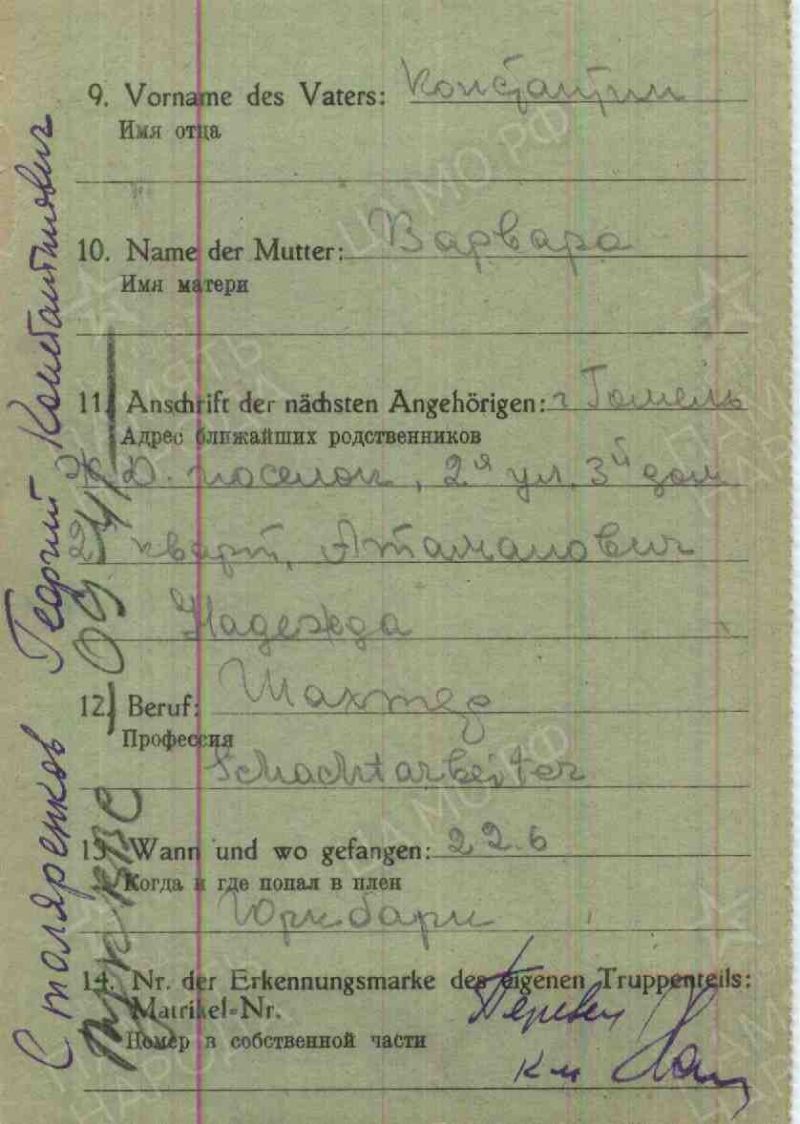 9. Vorname des Vaters: Константин
Имя отца
10. Name der Mutter: Варвара
Имя матери
11. Anschrift der nächsten Angehörigen: г Гомель
Адрес ближайших родственников
Ж.Д. поселок, 2я ул. 3й дом
2 кварт, Атаманович
Надежда
12. Beruf: Шахтер
Профессия
Schachtarbeiter
13. Wann und wo gefangen: 22.6
Когда и где попал в плен
Юрибари
14. Nr. der Erkennungsmarke des eigenen Truppenteils:
Matrikel-Nr.
Номер в собственной части
Столяренков Георгий Константинович